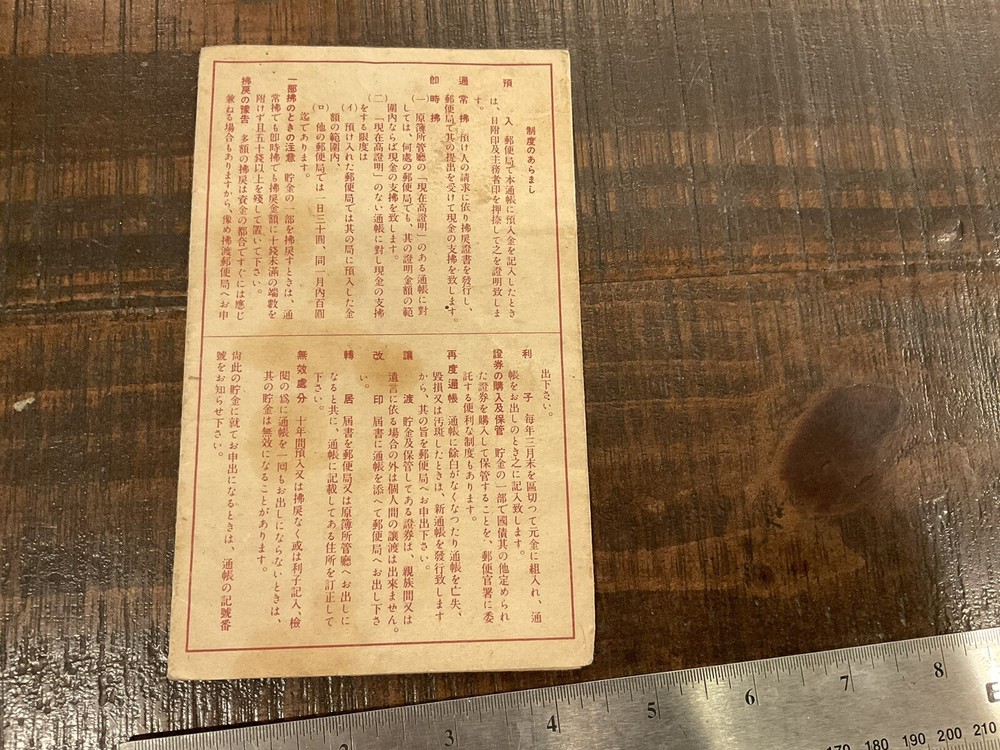 制度のあらまし
預入 郵便局で本通帳に預入金を記入したとき
は、日附印及主務者印を押捺して之を證明致しま
す。
通常拂 預け人の請求に依り拂戻證書を發行し、
郵便局で其の提出を受けて現金の支拂を致します。
即時拂
(一)原簿所管廳の「現在高證明」のある通帳に對
しては、何處の郵便局でも、其の證明金額の範
圍内ならば現金の支拂を致します。
(二)「現在高證明」のない通帳に對し現金の支拂
をする限度は
(イ)預け入れた郵便局では其の局に預入した金
額の範圍内、
(ロ)他の郵便局では一日三十圓、同一月内百圓
迄であります。
一部拂のときの注意 貯金の一部を拂戻すときは、通
常拂でも即時拂でも拂戻金額に十錢未滿の端數を
附けず且五十錢以上を殘して置いて下さい。
拂戻の豫告 多額の拂戻は資金の都合ですぐには應じ
兼ねる場合もありますから、豫め拂渡郵便局へお申
出下さい。
利子 毎年三月末を區切つて元金に組入れ、通
帳をお出しのとき之に記入致します。
證券の購入及保管 貯金の一部で國債其の他定められ
た證券を購入して保管することを、郵便官署に委
託する便利な制度もあります。
再度通帳 通帳に餘白がなくなつたり通帳を亡失、
毀損又は汚斑したときは、新通帳を發行致します
から、其の旨を郵便局へお申出下さい。
讓渡 貯金及保管してある證券は、親族間又は
遺言に依る場合の外は個人間の讓渡は出來ません。
改印 屆書に通帳を添へて郵便局へお出し下さ
い。
轉居 屆書を郵便局又は原簿所管廳へお出しに
なると共に、通帳に記載してある住所を訂正して
下さい。
無效處分 十年間預入又は拂戻なく或は利子記入、檢
閲の爲に通帳を一回もお出しにならないときは、
其の貯金は無效になることがあります。
尚此の貯金に就てお申出になるときは、通帳の記號番
號をお知らせ下さい。
2 3 4 5 6 7 8
170 180 190 200 210